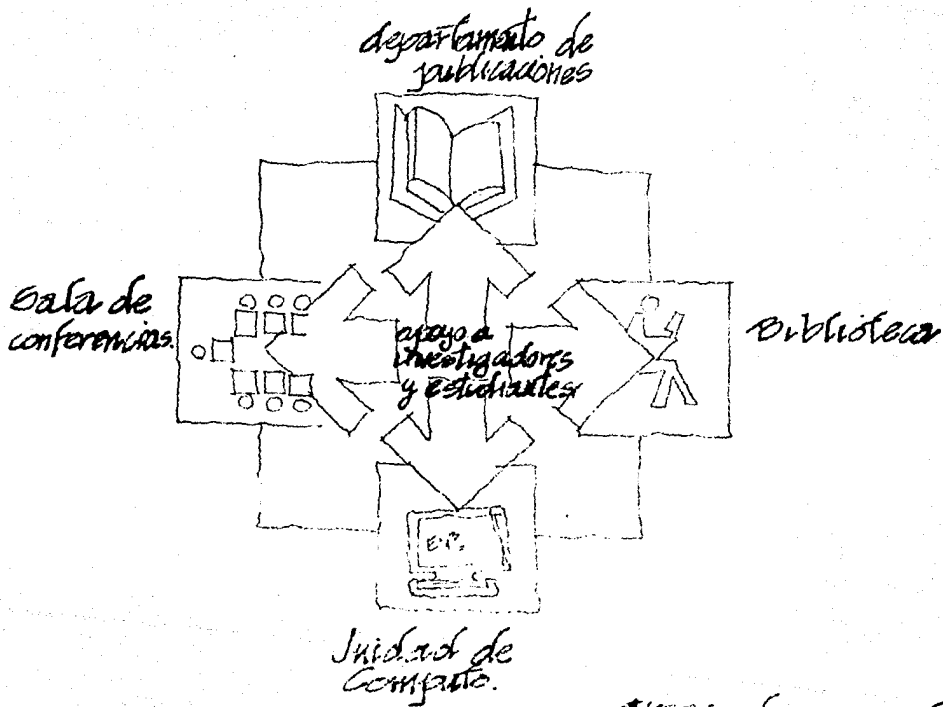 departamento de
publicaciones
Sala de
conferencias.
apoyo a
investigadores
y estudiantes
Biblioteca
Unidad de
Computo.